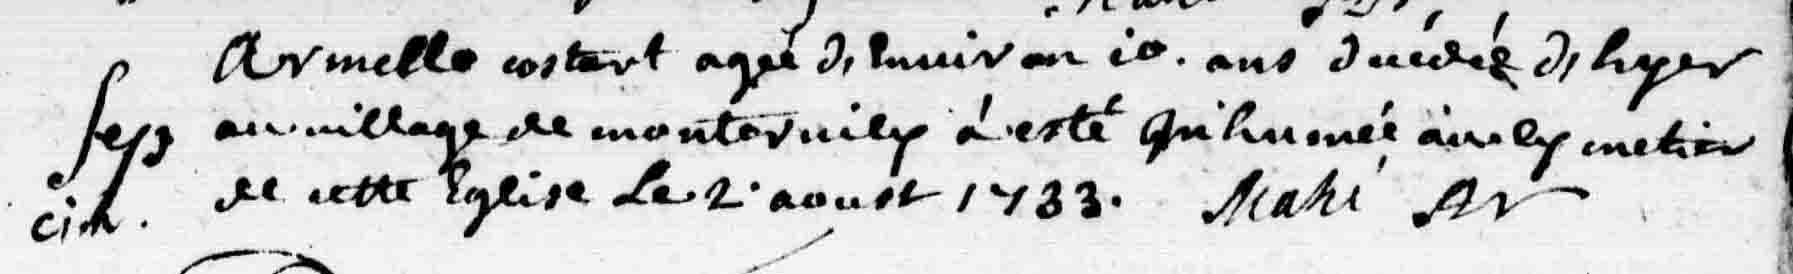 Armelle costart agée d'environ 10. ans d'écédée d'hyer
au village de monternily á esté inhumée au cymetier
de cette Eglise Le 2 aoust 1733. Mahé
sep
cim.